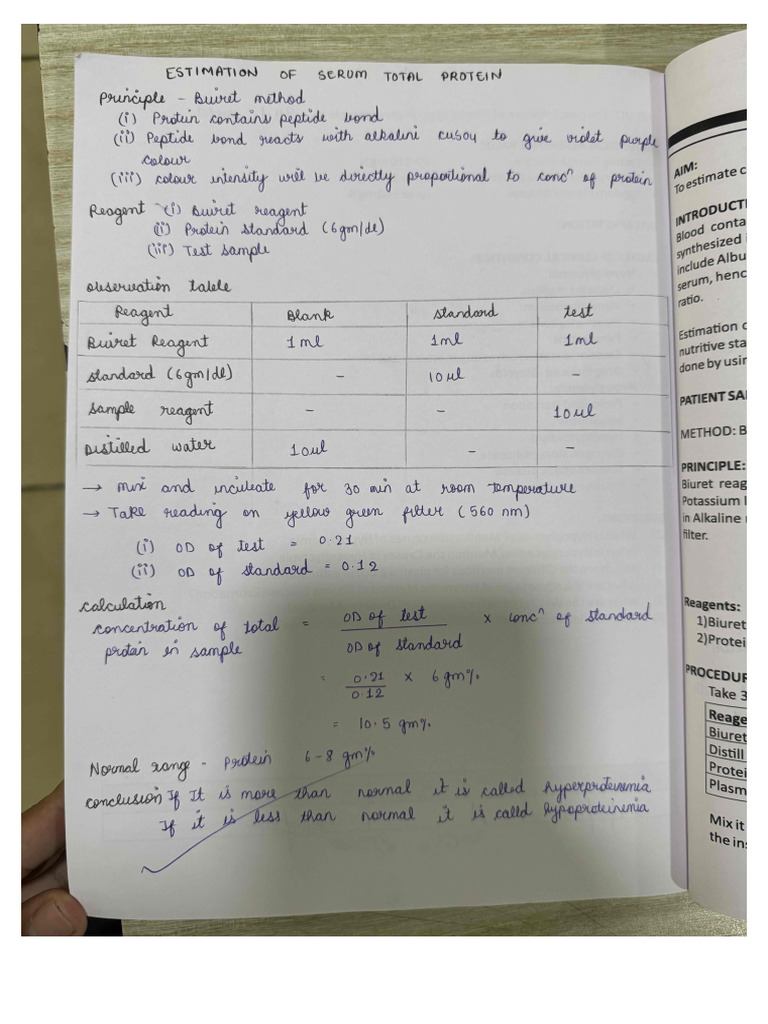 ESTIMATION OF SERUM TOTAL PROTEIN
Principle - Buiret method
(i) Protein contains peptide bond
(ii) Peptide bond reacts with alkalini cuso4 to give violet purple
colour
(iii) colour intensity will be directly propotional to concⁿ of protein
Reagent - (i) Buiret reagent
(ii) Protein standard (6gm/dl)
(iii) Test sample
Observation table
Reagent Blank standard test
Buiret Reagent 1 ml 1ml 1ml
standard (6gm/dl) - 10 μl -
Sample reagent - - 10μl
Distilled water 10μl - -
→ Mix and incubate for 30 min at room temperature
→ Take reading on yellow green filter (560 nm)
(i) OD of test = 0.21
(ii) OD of standard = 0.12
Calculation
Concentration of total protein in sample = OD of test / OD of standard x concⁿ of standard
= 0.21 / 0.12 x 6 gm%
= 10.5 gm%
Normal range - Protein 6-8 gm%
Conclusion If It is more than normal it is called hyperproteinemia
If it is less than normal it is called hypoproteinemia
AIM:
To estimate c
INTRODUCTI
Blood conta
synthesized i
include Albu
serum, henc
ratio.
Estimation o
nutritive sta
done by usin
PATIENT SA
METHOD: B
PRINCIPLE:
Biuret reag
Potassium I
in Alkaline
filter.
Reagents:
1)Biuret
2)Protei
PROCEDUR
Take 3
Reage
Biuret
Distill
Protei
Plasm
Mix it
the in